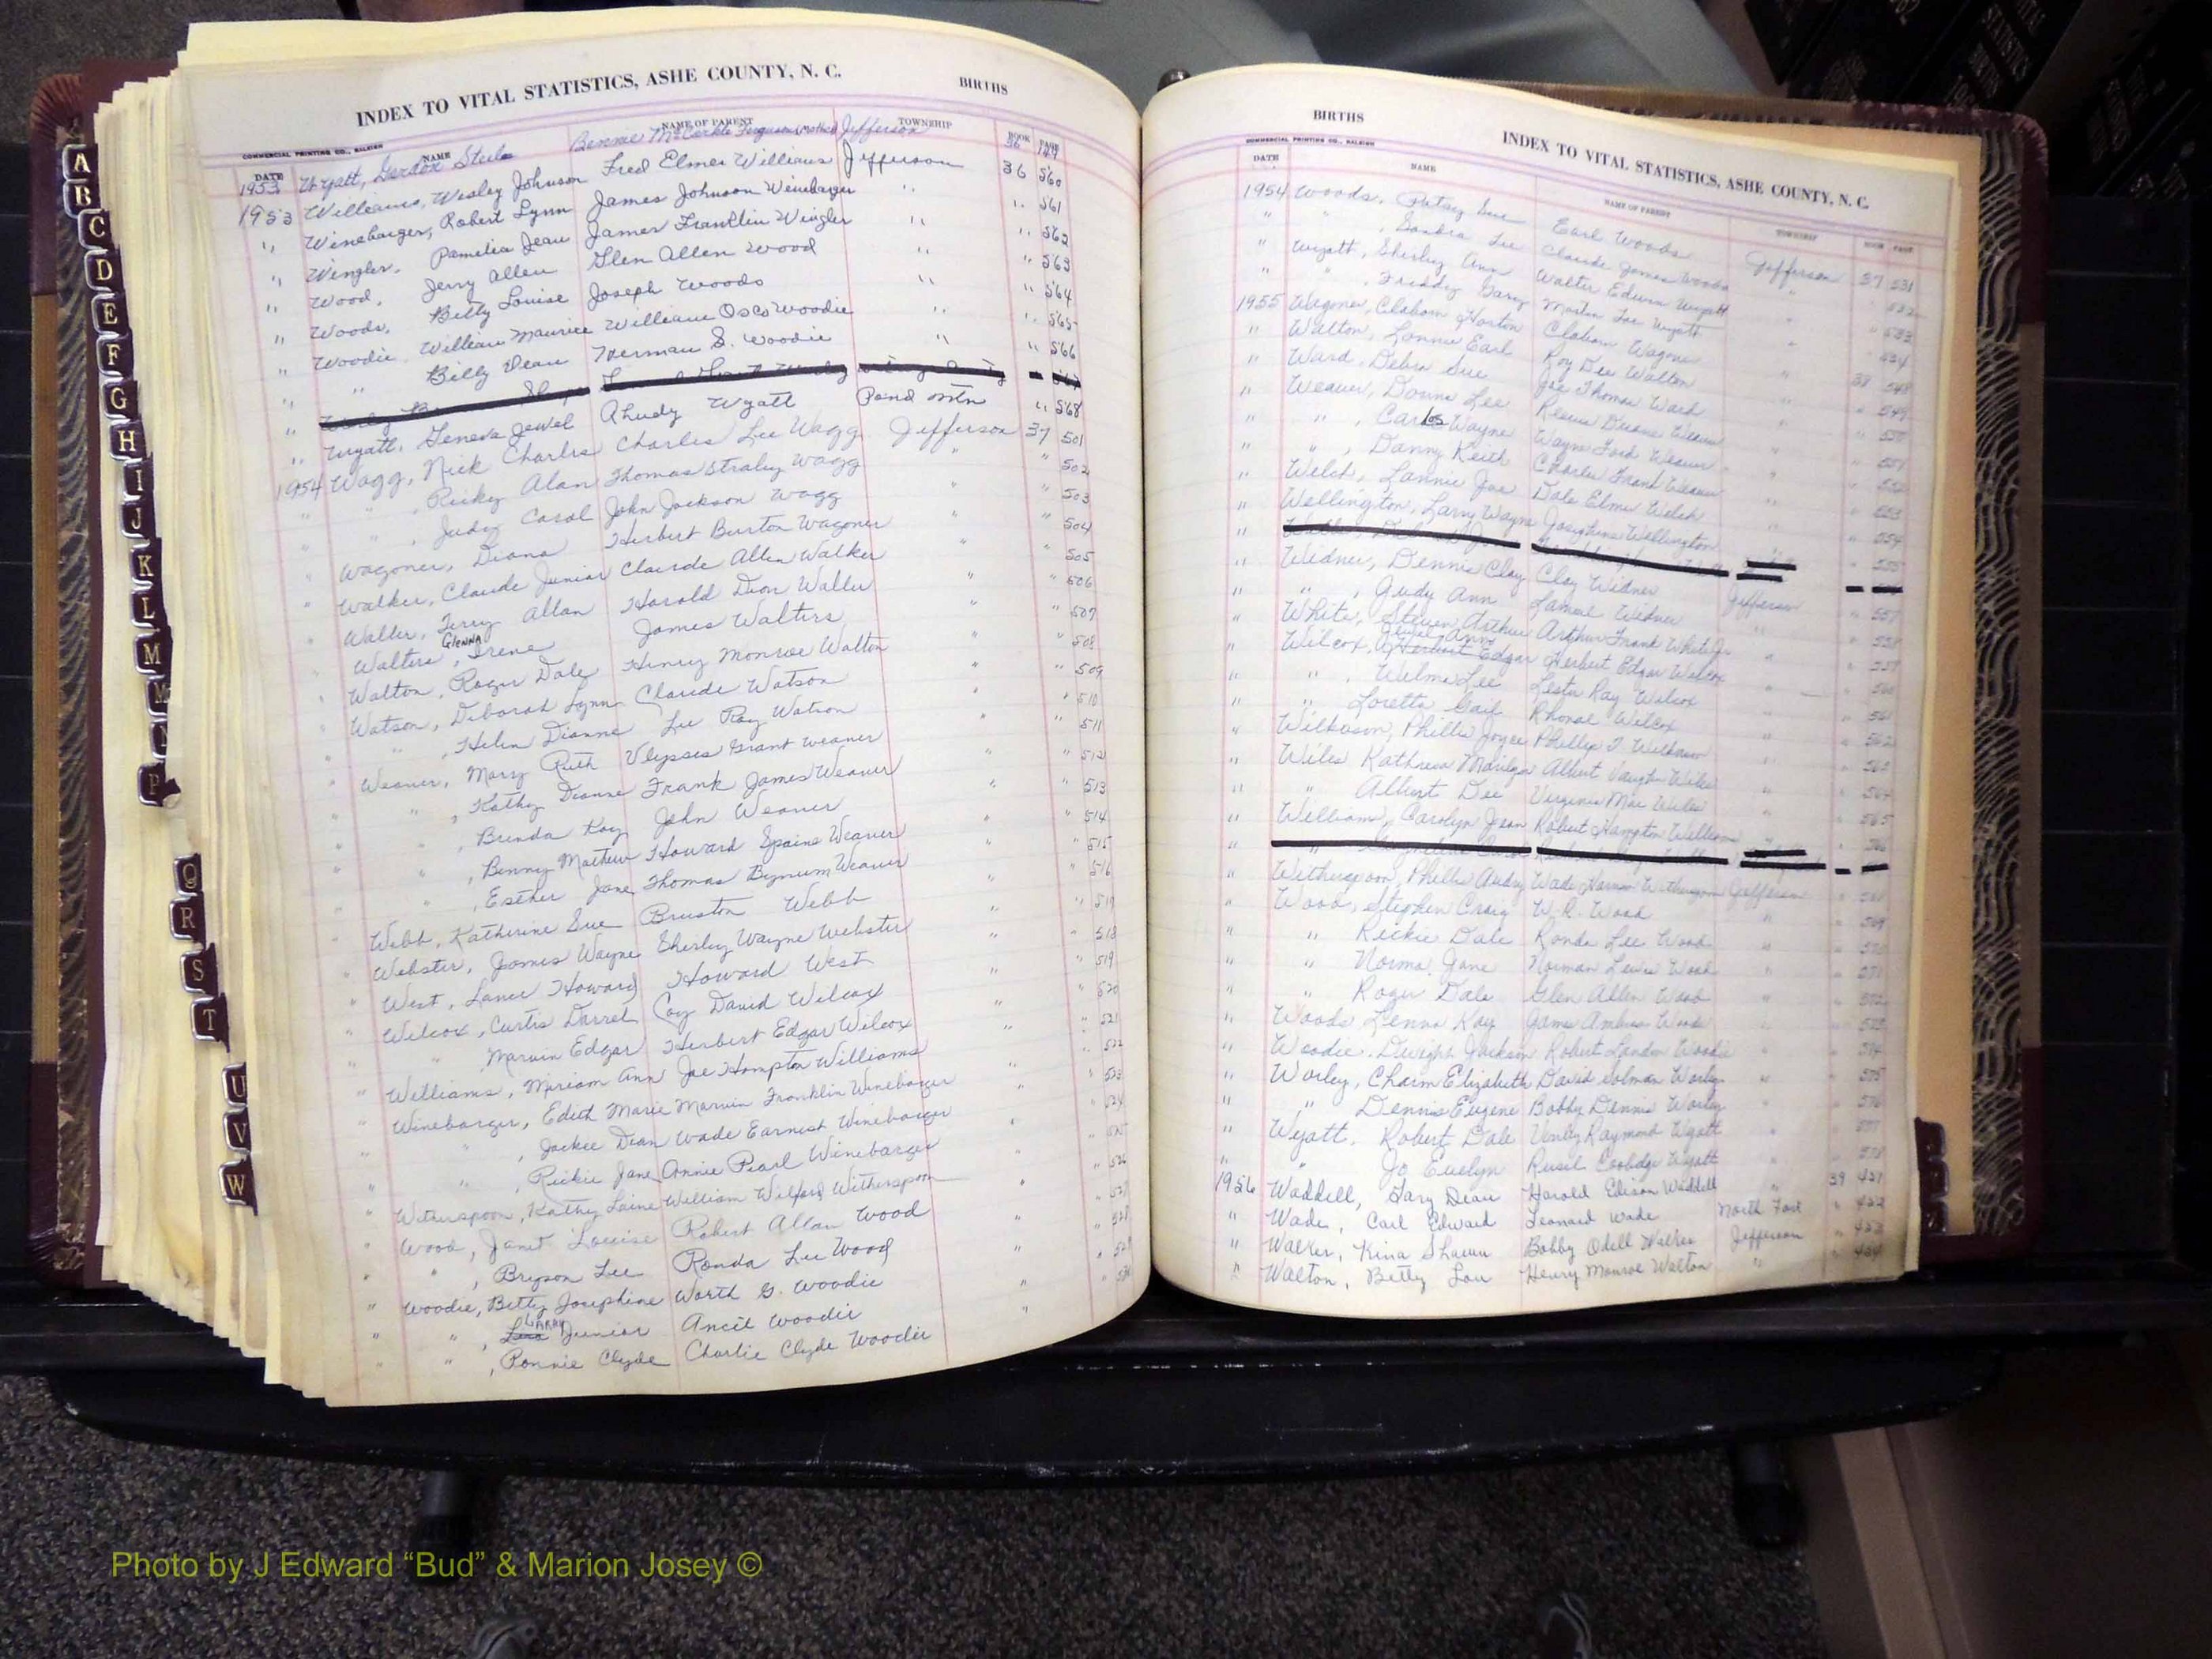 INDEX TO VITAL STATISTICS, ASHE COUNTY, N. C. BIRTHS
COMMERCIAL PRINTING CO., RALEIGH
DATE NAME NAME OF PARENT TOWNSHIP BOOK PAGE
1953 Wyatt, Gordon Steele Bennie McCorkle Ferguson (Mother) Jefferson 36 149
1953 Williams, Wesley Johnson Fred Elmer Williams Jefferson 36 560
" Winebarger, Robert Lynn James Johnson Winebarger " " 561
" Wingler, Pamelia Jean James Franklin Wingler " " 562
" Wood, Jerry Allen Glen Allen Wood " " 563
" Woods, Betty Louise Joseph Woods " " 564
" Woodie, William Maurice William Osco Woodie " " 565
" " Billy Dean Herman S. Woodie " " 566
" Wyatt, Geneva Jewel Rhudy Wyatt Pond Mtn " 568
1954 Wagg, Nick Charles Charles Lee Wagg Jefferson 37 501
" " , Ricky Alan Thomas Straley Wagg " " 502
" " , Judy Carol John Jackson Wagg " " 503
" Wagoner, Diana Herbert Burton Wagoner " " 504
" Walker, Claude Junior Claude Allen Walker " " 505
" Waller, Terry Allan Harold Dion Waller " " 506
" Walters, Glenna Irene James Walters " " 507
" Walton, Roger Dale Henry Monroe Walton " " 508
" Watson, Deborah Lynn Claude Watson " " 509
" " , Helen Dianne Lee Roy Watson " " 510
" Weaver, Mary Ruth Ulysses Grant Weaver " " 511
" " , Kathy Dianne Frank James Weaver " " 512
" " , Brenda Kay John Weaver " " 513
" " , Benny Mathew Howard Spaine Weaver " " 514
" " , Esther Jane Thomas Bynum Weaver " " 515
" Webb, Katherine Sue Bruston Webb " " 516
" Webster, James Wayne Shirley Wayne Webster " " 517
" West, Lance Howard Howard West " " 518
" Wilcox, Curtis Darrel Coy David Wilcox " " 519
" " , Marvin Edgar Herbert Edgar Wilcox " " 520
" Williams, Miriam Ann Joe Hampton Williams " " 521
" Winebarger, Edith Marie Marvin Franklin Winebarger " " 522
" " , Jackie Dean Wade Earnest Winebarger " " 523
" " , Rickie Jane Annie Pearl Winebarger " " 524
" Witherspoon, Kathy Laine William Wilford Witherspoon " " 525
" Wood, Janet Louise Robert Allan Wood " " 526
" " , Bryson Lee Ronda Lee Wood " " 527
" Woodie, Betty Josephine Worth G. Woodie " " 528
" " , Larry Junior Ancil Woodie " " 529
" " , Ronnie Clyde Charlie Clyde Woodie " " 530
BIRTHS INDEX TO VITAL STATISTICS, ASHE COUNTY, N. C.
COMMERCIAL PRINTING CO., RALEIGH
DATE NAME NAME OF PARENT TOWNSHIP BOOK PAGE
1954 Woods, Patsy Sue Earl Woods Jefferson 37 531
" " , Sandra Lee Claude James Woods " " 532
" Wyatt, Shirley Ann Walter Edwin Wyatt " " 533
" " , Freddy Gary Martin Joe Wyatt " " 534
1955 Wagoner, Claborn Horton Claborn Wagoner " 38 548
" Walton, Lonnie Earl Roy Dee Walton " " 549
" Ward, Debra Sue Joe Thomas Ward " " 550
" Weaver, Donna Lee Weaver " " 551
" " , Carlos Wayne Wayne Ford Weaver " " 552
" " , Danny Keith Charles Frank Weaver " " 553
" Welch, Lannie Joe Dale Elmer Welch " " 554
" Wellington, Larry Wayne Josephine Wellington " " 555
" Widner, Dennis Clay Clay Widner Jefferson " 557
" " , Judy Ann Samuel Widner " " 558
" White, Steven Arthur Arthur Frank White Jr. " " 559
" Wilcox, Jewel Ann Herbert Edgar Herbert Edgar Wilcox " " 560
" " , Wilma Lee Lester Ray Wilcox " " 561
" " Loretta Gail Rhonal Wilcox " " 562
" Wilkinson, Phillis Joyce Phillip T. Wilkinson " " 563
" Wiles Kathreen Marilyn Albert Vaughn Wiles " " 564
" " Albert Dee Virginia Mae Wiles " " 565
" Williams, Carolyn Jean Robert Hampton Williams " " 566
" Witherspoon, Phillis Audry Wade Harmon Witherspoon Jefferson " 568
" Wood, Stephen Craig W. R. Wood " " 569
" " Rickie Dale Ronda Lee Wood " " 570
" " Norma Jane Norman Lewis Wood " " 571
" " Roger Dale Glen Allen Wood " " 572
" Woods Lenna Kay James Ambrose Woods " " 573
" Woodie, Dwight Jackson Robert Landon Woodie " " 574
" Worley, Charm Elizabeth David Solman Worley " " 575
" " Dennis Eugene Bobby Dennis Worley " " 576
" Wyatt, Robert Dale Venly Raymond Wyatt " " 577
" " Jo Evelyn Rusil Coolidge Wyatt " " 578
1956 Waddell, Gary Dean Harold Edison Waddell " 39 421
" Wade, Carl Edward Leonard Wade North Fork " 422
" Walker, Kina Shawn Bobby Odell Walker Jefferson " 423
" Walton, Betty Lou Henry Monroe Walton " " 424
A
B
C
D
E
F
G
H
I
J
K
L
M
N
P
Q
R
S
T
U
V
W
Photo by J Edward “Bud” & Marion Josey ©